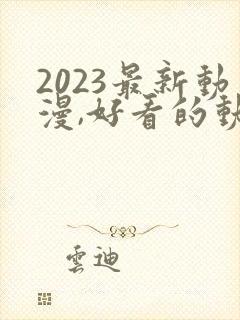 2023最新動
漫,好看的動
雲迪